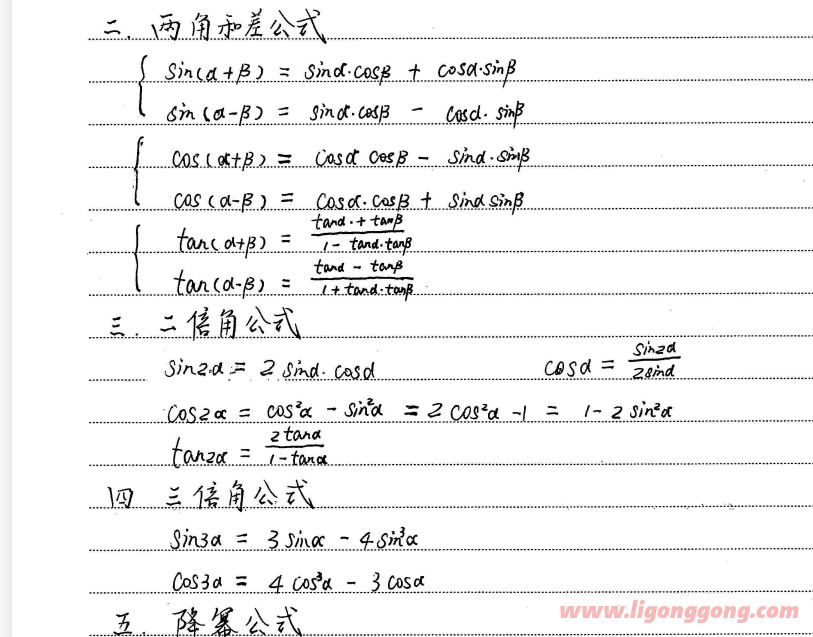 二. 两角和差公式
sin(α+β) = sinα·cosβ + cosα·sinβ
sin(α-β) = sinα·cosβ - cosα·sinβ
cos(α+β) = cosα cosβ - sinα·sinβ
cos(α-β) = cosα·cosβ + sinα sinβ
tan(α+β) = (tanα·+tanβ)/(1-tanα·tanβ)
tan(α-β) = (tanα-tanβ)/(1+tanα·tanβ)
三. 二倍角公式
sin2α = 2 sinα·cosα cosα = sin2α/2sinα
cos2α = cos²α - sin²α = 2cos²α - 1 = 1 - 2 sin²α
tan2α = 2tanα/(1-tanα)
四 三倍角公式
sin3α = 3 sinα - 4 sin³α
cos3α = 4 cos³α - 3 cosα
五. 降幂公式
www.ligonggong.com